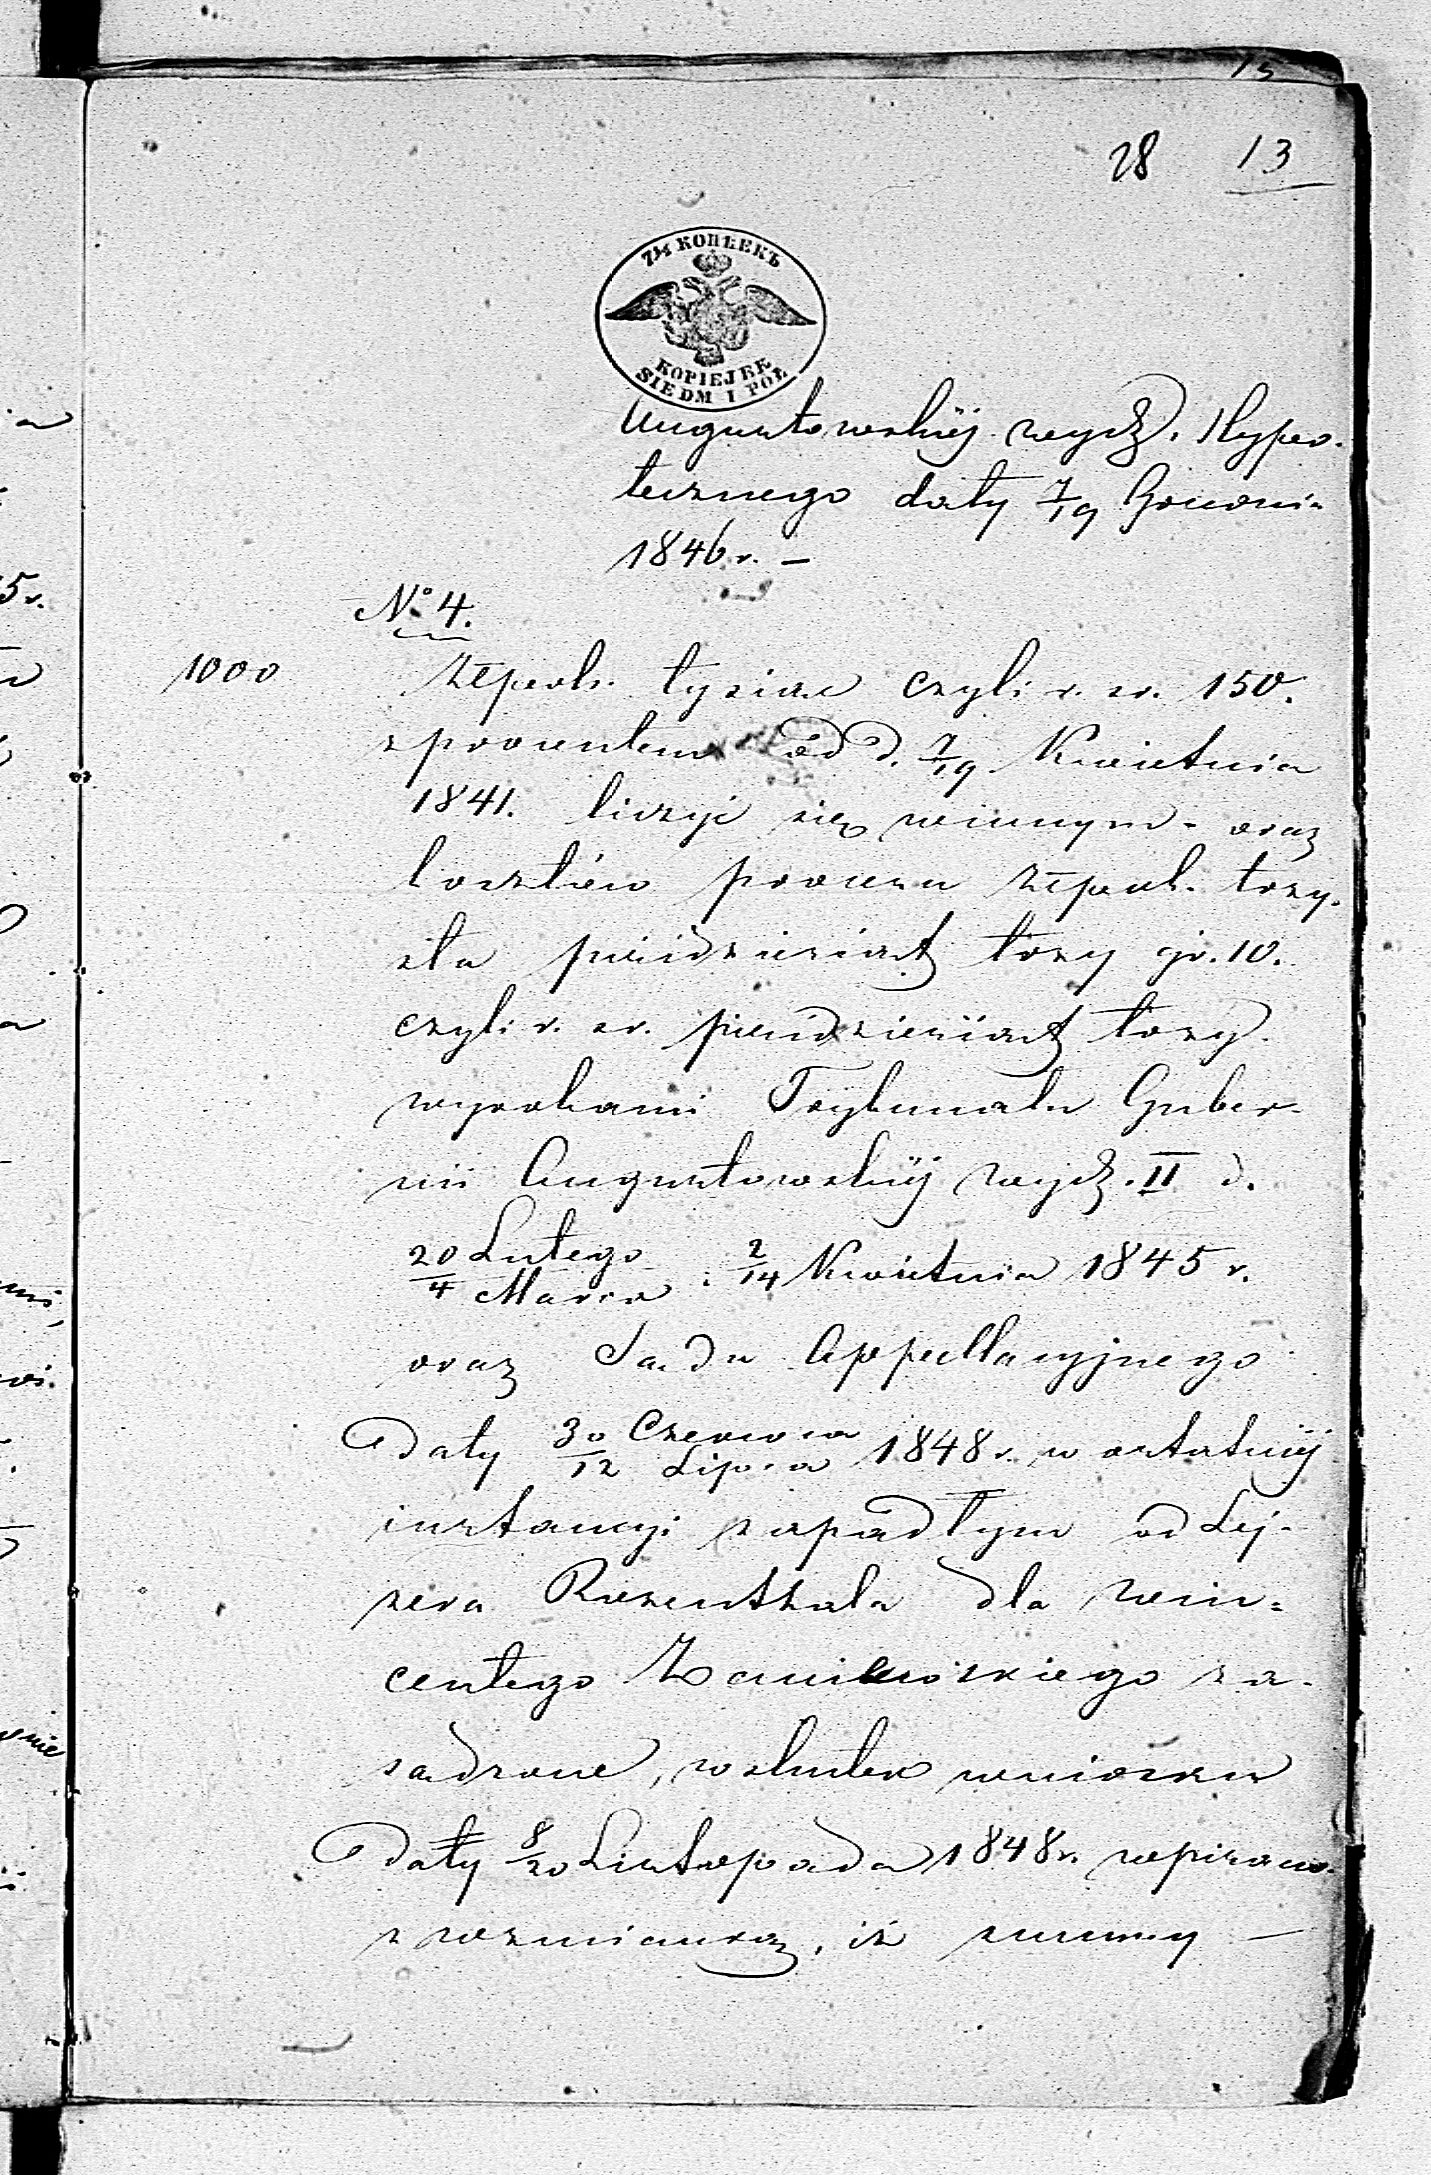 15
28 13
7½ КОПѢЕКЪ
KOPIEJEK
SIEDM I POŁ
Augustowskiéj wydz. Hypo-
tecznego daty 7/19 Grudnia
1846 r. –
No 4.
1000 Złpols. tysiąc czyli r. sr. 150.
z procentem od d. 7/19 Kwietnia
1841. liczyć się winnym - oraz
kosztów procesu złpols. trzy-
sta pięćdziesiąt trzy gr. 10.
czyli r. sr. pięćdziesiąt trzy
wyrokami Trybunału Guber-
nii Augustowskiéj wydz. II d.
20 Lutego / 4 Marca i 2/14 Kwietnia 1845 r.
oraz Sądu Appellacyjnego
daty 30 Czerwca / 12 Lipca 1848 r. w ostatniéj
instancyi zapadłym od Lej-
zera Rozenthala dla Win-
centego za-
sądzone, wskutek wniosku
daty 8/20 Listopada 1848 r. wpisano
z wzmianką, iż summy –